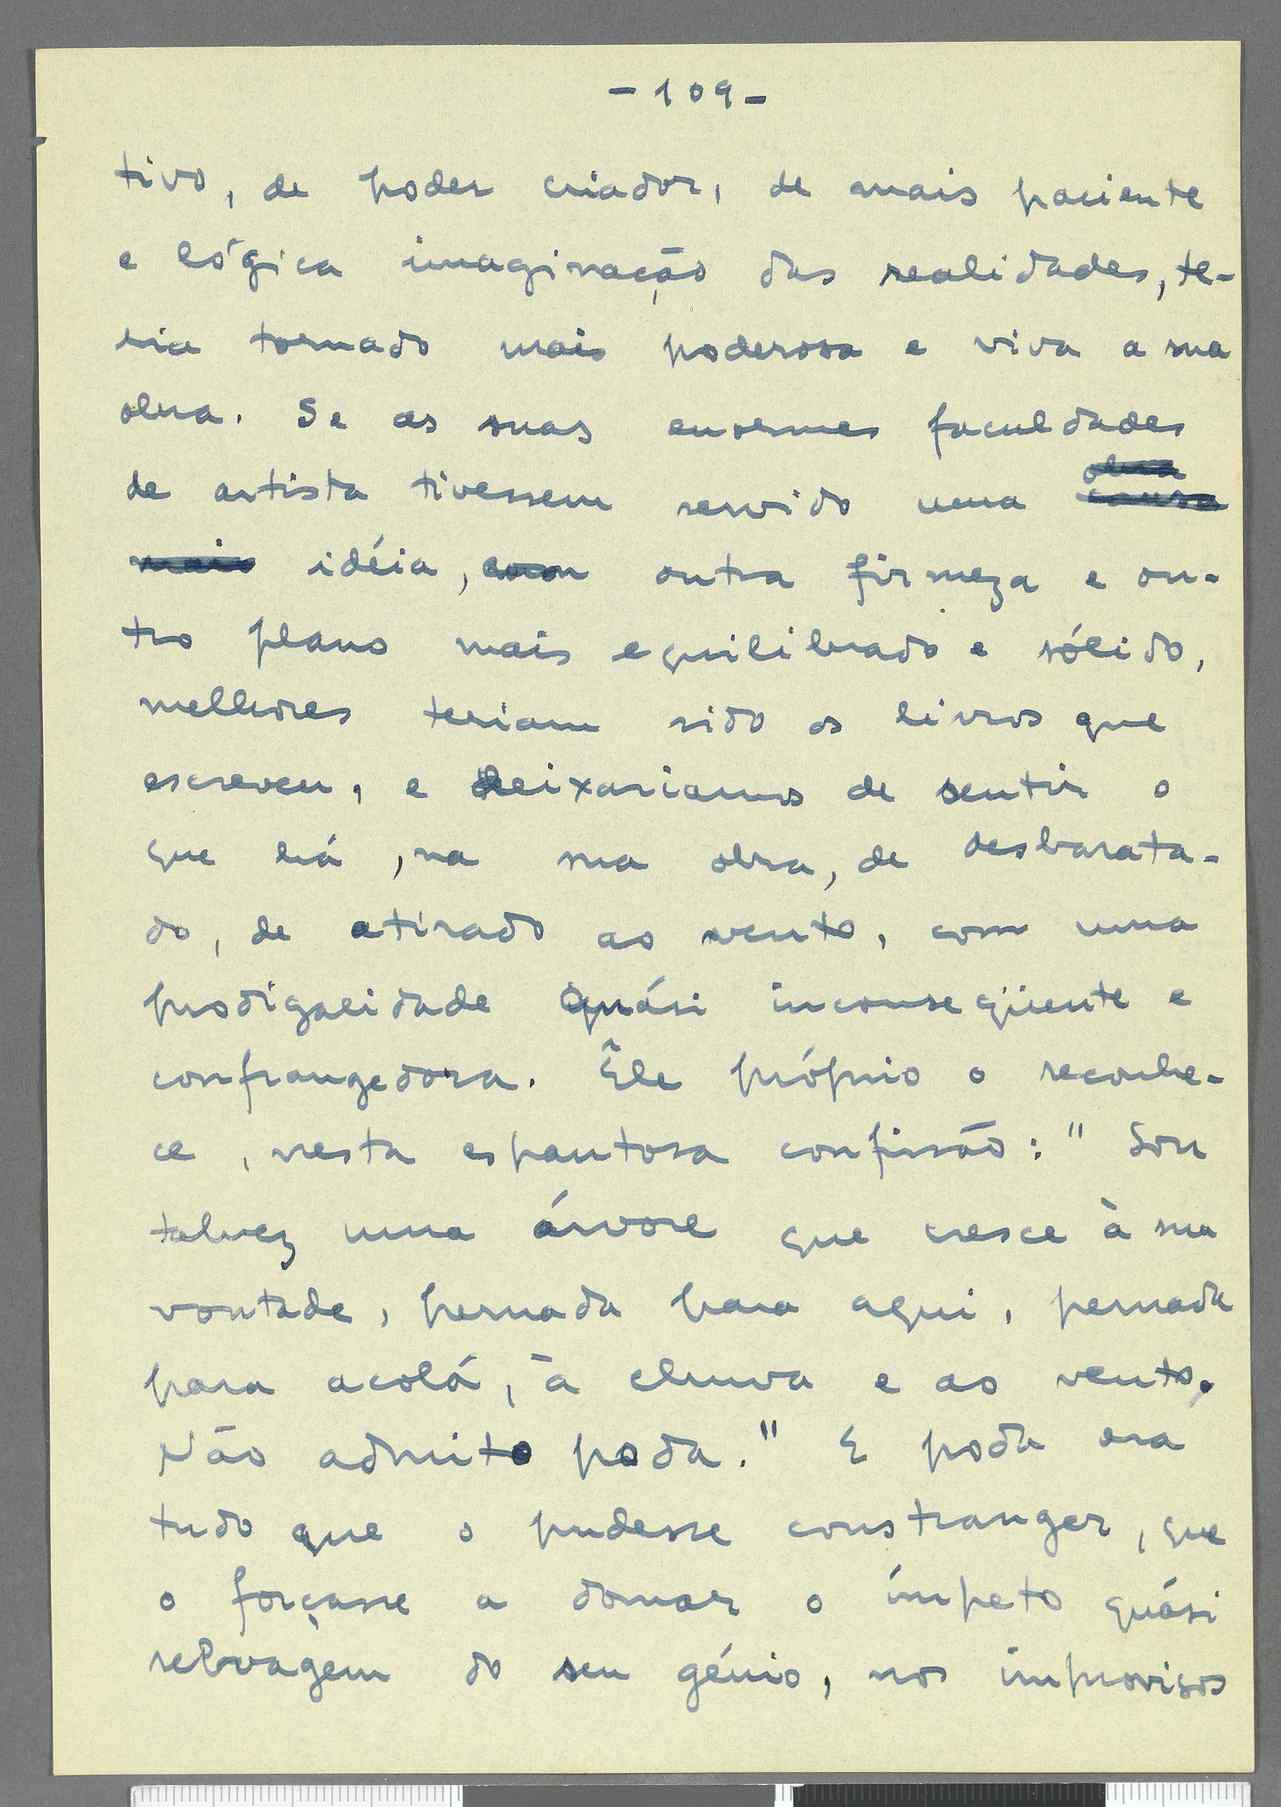 -109-
tivo, de poder criador, de mais paciente
e lógica imaginação das realidades, te-
ria tornado mais poderosa e viva a sua
obra. Se as suas enormes faculdades
de artista tivessem servido uma obra causa
mais idéia, com outra firmeza e ou-
tro plano mais equilibrado e sólido,
melhores teriam sido os livros que
escreveu, e deixariamos de sentir o
que há, na sua obra, de desbarata-
do, de atirado ao vento, com uma
prodigalidade quási inconseqüente e
confrangedora. Êle próprio o reconhe-
ce, nesta espantosa confissão: "Sou
talvez uma árvore que cresce à sua
vontade, pernada para aqui, pernada
para acolá, à chuva e ao vento.
Não admito poda." E poda era
tudo que o pudesse constranger, que
o forçasse a domar o ímpeto quási
selvagem do seu génio, nos improvisos